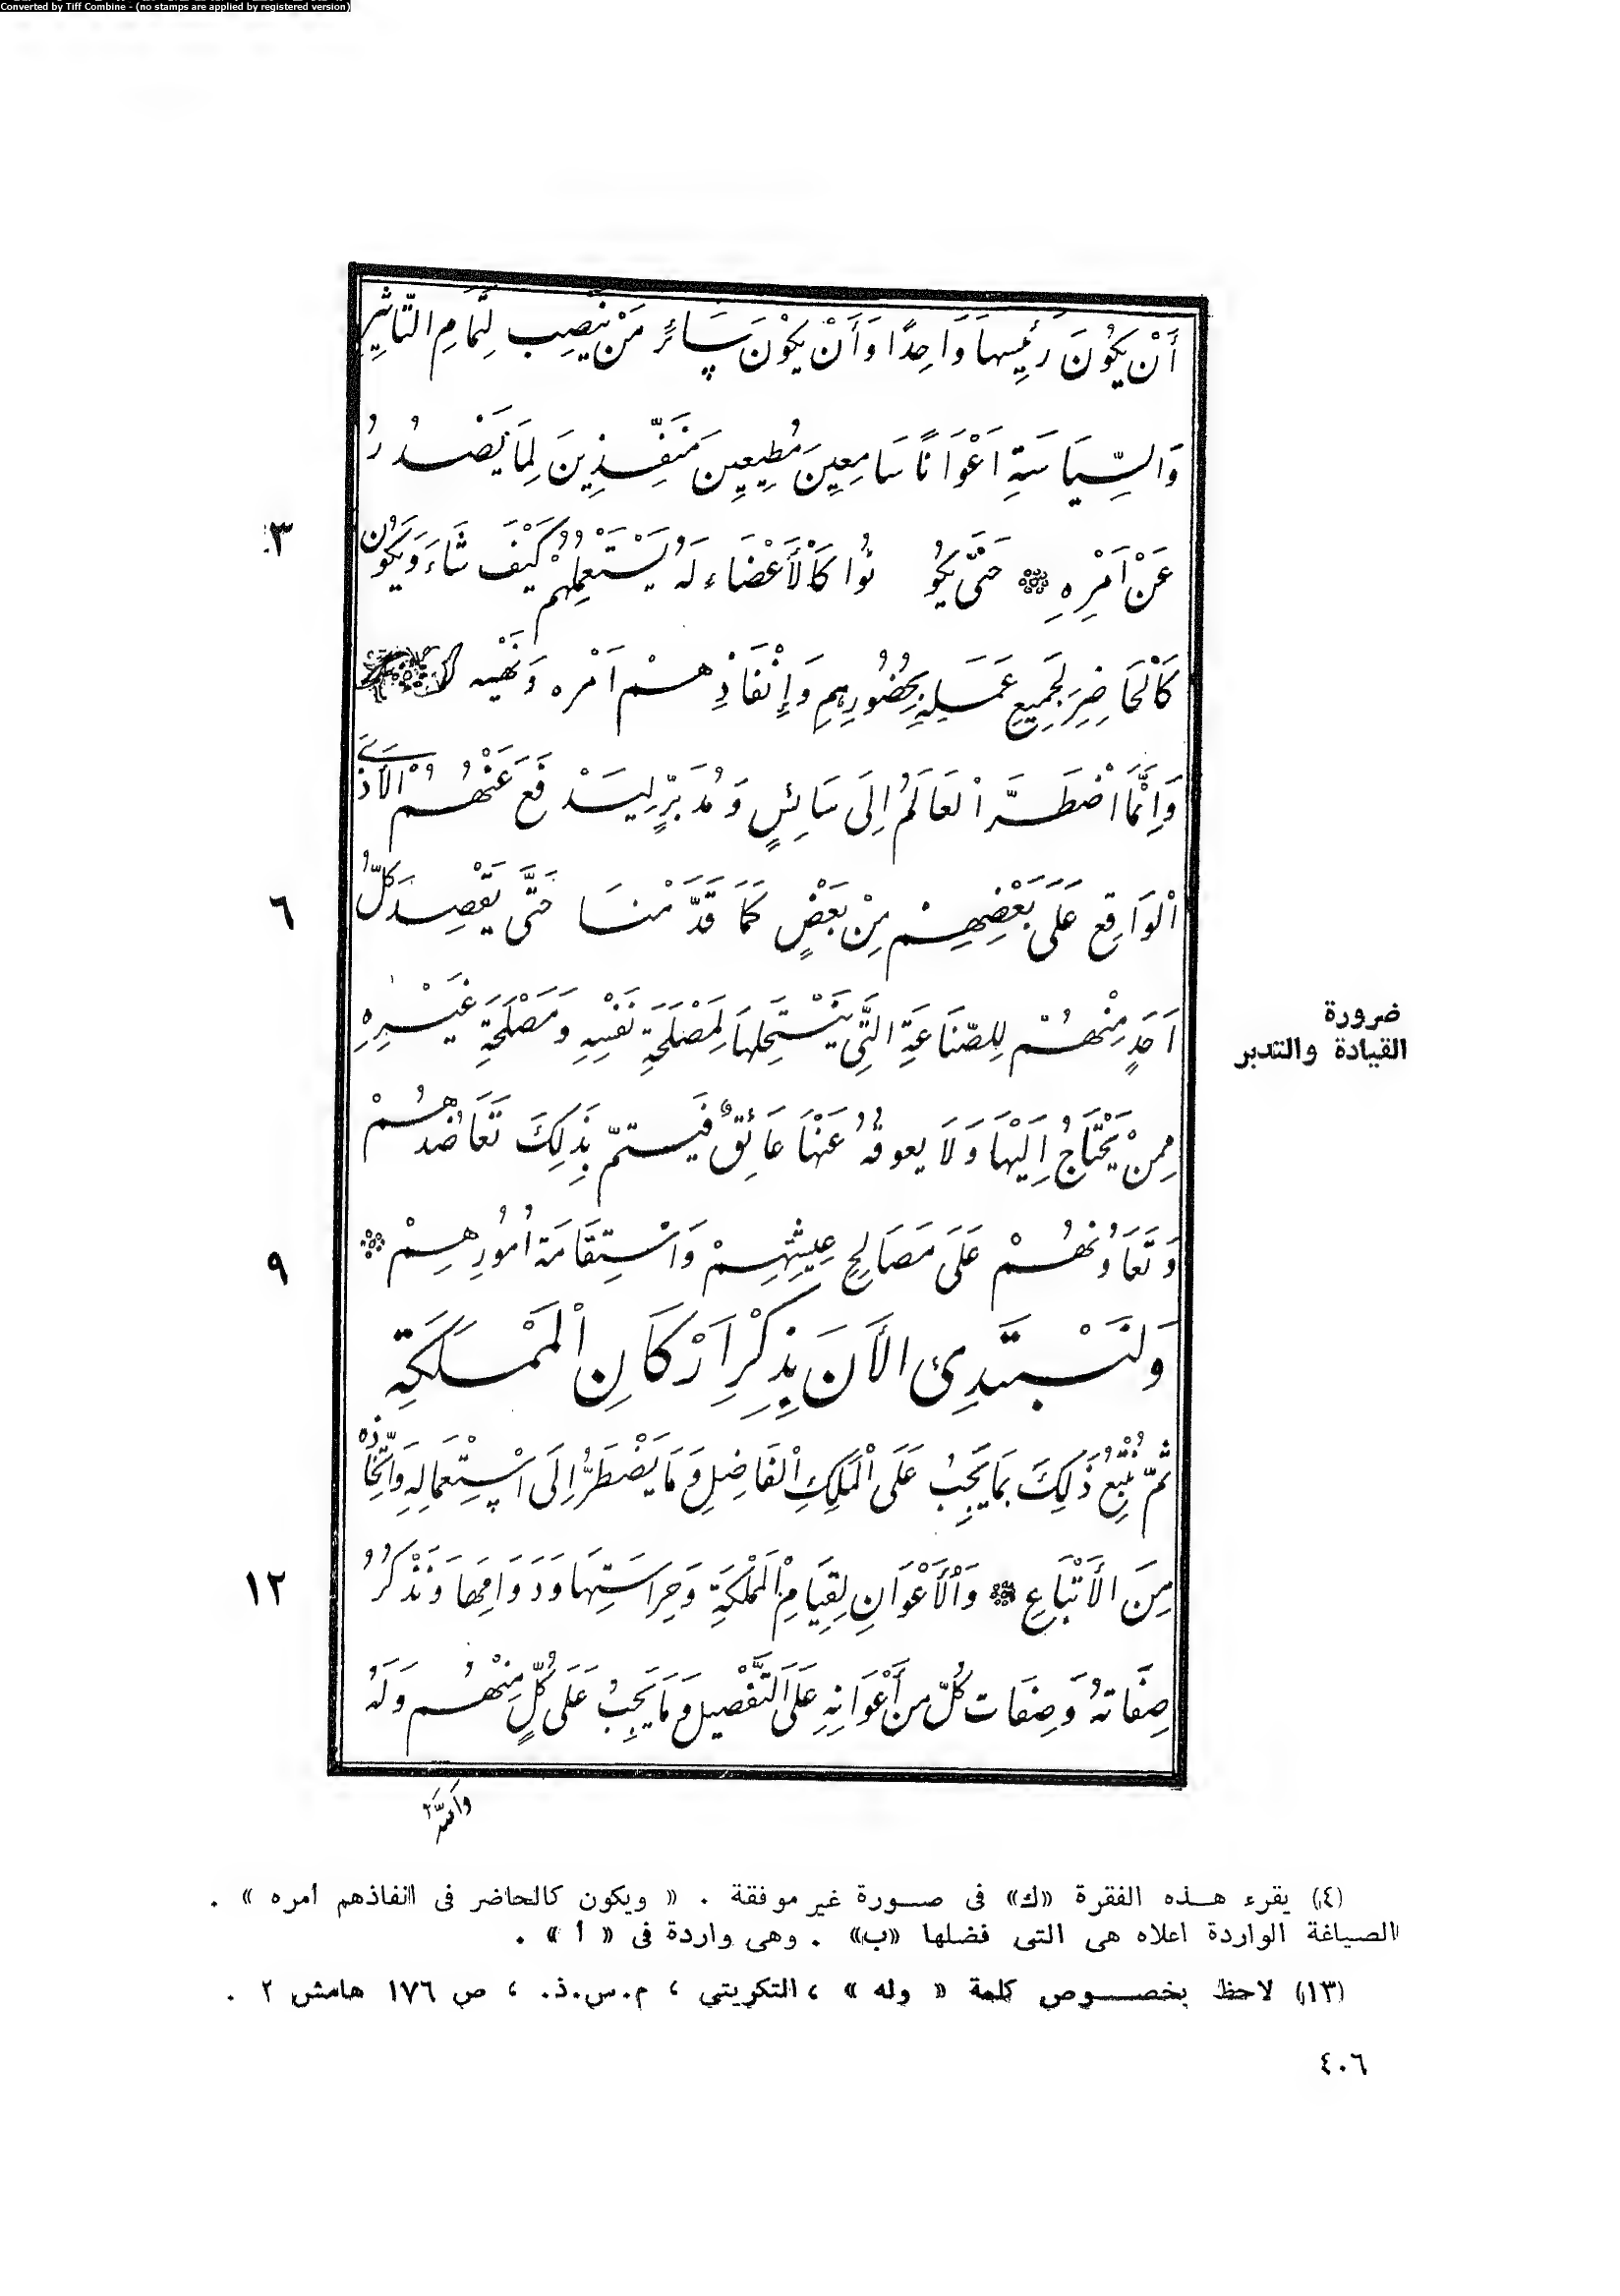 Converted by Tiff Combine - (no stamps are applied by registered version)
أَنْ يَكُونَ رَئِيسِهَا وَاحِدًا وَأَنْ يَكْوُنَ سَائِرُ مَنْ يَنْصِب لِتَمَامِ التَّاثِيِرِ
وَالسِّيَاسَةِ اَعْوَانًا سَامِعِينَ مُطِيعِينَ مَنَفِّذِينَ لِمَا يَصْدُرُ
٣
عَنْ اَمْرِهِ حَتَّى يَكُونُوا كَالْأَعْضَاءِ لَهُ يَسْتَعْمِلُهُمْ كَيْفَ شَاءَ وَيَكُوُن
كَالْحَاضِرِ لَجَمِيعِ عَمَلِهِ بِحُضُورِهِمِ وَإِنْفَاذِهِمْ اَمْره وَنَهْيه
وَاِنَّمَا اضْطَرَّ الْعَالَمُ اِلَى سَائِسٍ وَمُدَبِّرٍ لِيَدْفَعَ عَنْهُمُ الْأَذَى
٦
الْوَاقِع عَلَى بَعْضِهِمْ مِنْ بَعَضٍ كَمَا قَدَّمْنَا حَتَّى يَقْصِدَ كَلُّ
اَحَدٍ مِنْهُمْ لِلصِّنَاعَةِ الَّتَّى يَنْتَحِلهَا لِمَصْلَحَةِ نَفْسِهِ وَمَصْلَحَةِ غَيْرِهِ
ضرورة
القيادة والتدبر
مِمنْ يَحْتَاجُ اِلَيْهَا وَلَا يعوقُهُ عَنْهَا عَائِقٌ فَيستمّ بِذَلِكَ تَعَاضُدهُمْ
وَتَعَاوُنهُمْ عَلَى مَصَالِحِ عِيشِهِمْ وَاسْتِقَامَة اُمُورِهِمْ
٩
وَلنَبْتَدِئ الأَنَ بِذِكْرِ اَرْكَانِ الْمَمْلَكَةِ
ثُمّ نُتْبِعُ ذَلِكَ بَمَا يَجِبُ عَلَى الْمَلِكِ الْفَاضِلِ وَمَا يَضْطَرُّ اِلَى اسْتِعْمَالِهِ وَاتِّخَاذه
١٢
مِنَ الأَتْبَاعِ وَالْأَعْوَانِ لِقِيَامِ الْمَمْلَكَةِ وَحِرَاسَتِهَا وَدَوَامِهَا وَنَذْكُرُ
صِفَاتهُ وَصِفَات كُلّ من أَعْوَانِهِ عَلَى التَّفْصِيل وَمَا يَجِبُ عَلَى كُلٍّ مِنْهُم وَلَهُ
(٤) يقرء هـذه الفقرة «ك» فى صـورة غير موفقة . « ويكون كالحاضر فى انفاذهم أمره » .
الصياغة الواردة اعلاه هى التى فضلها «ب» . وهى واردة فى « أ » .
(١٣) لاحظ بخصـوص كلمة « وله » ، التكريتى ، م.س.ذ. ، ص ١٧٦ هامش ٢ .
٤٠٦